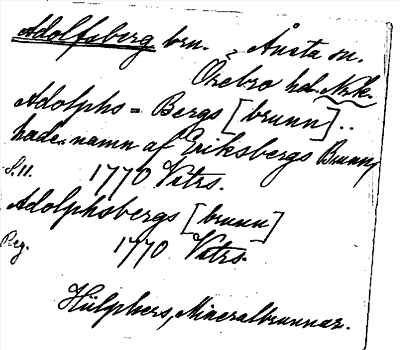 Adolfsberg brn. i Ånsta sn.
Örebro hd. Nrk.
Adolphs = Bergs [brunn]..
hade namn af Eriksbergs Brunn,
S. 11. 1770 Vitrs.
Adolphsbergs [brunn]
Reg. 1770 Vitrs.
Hülphers, Mineralbrunnar.